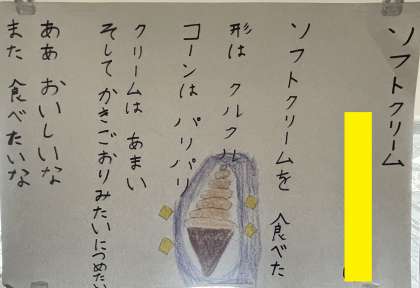 ソフトクリーム
ソフトクリームを 食べた
形は クルクル
コーンは パリパリ
クリームは あまい
そして かきごおりみたいにつめたい
ああ おいしいな
また 食べたいな